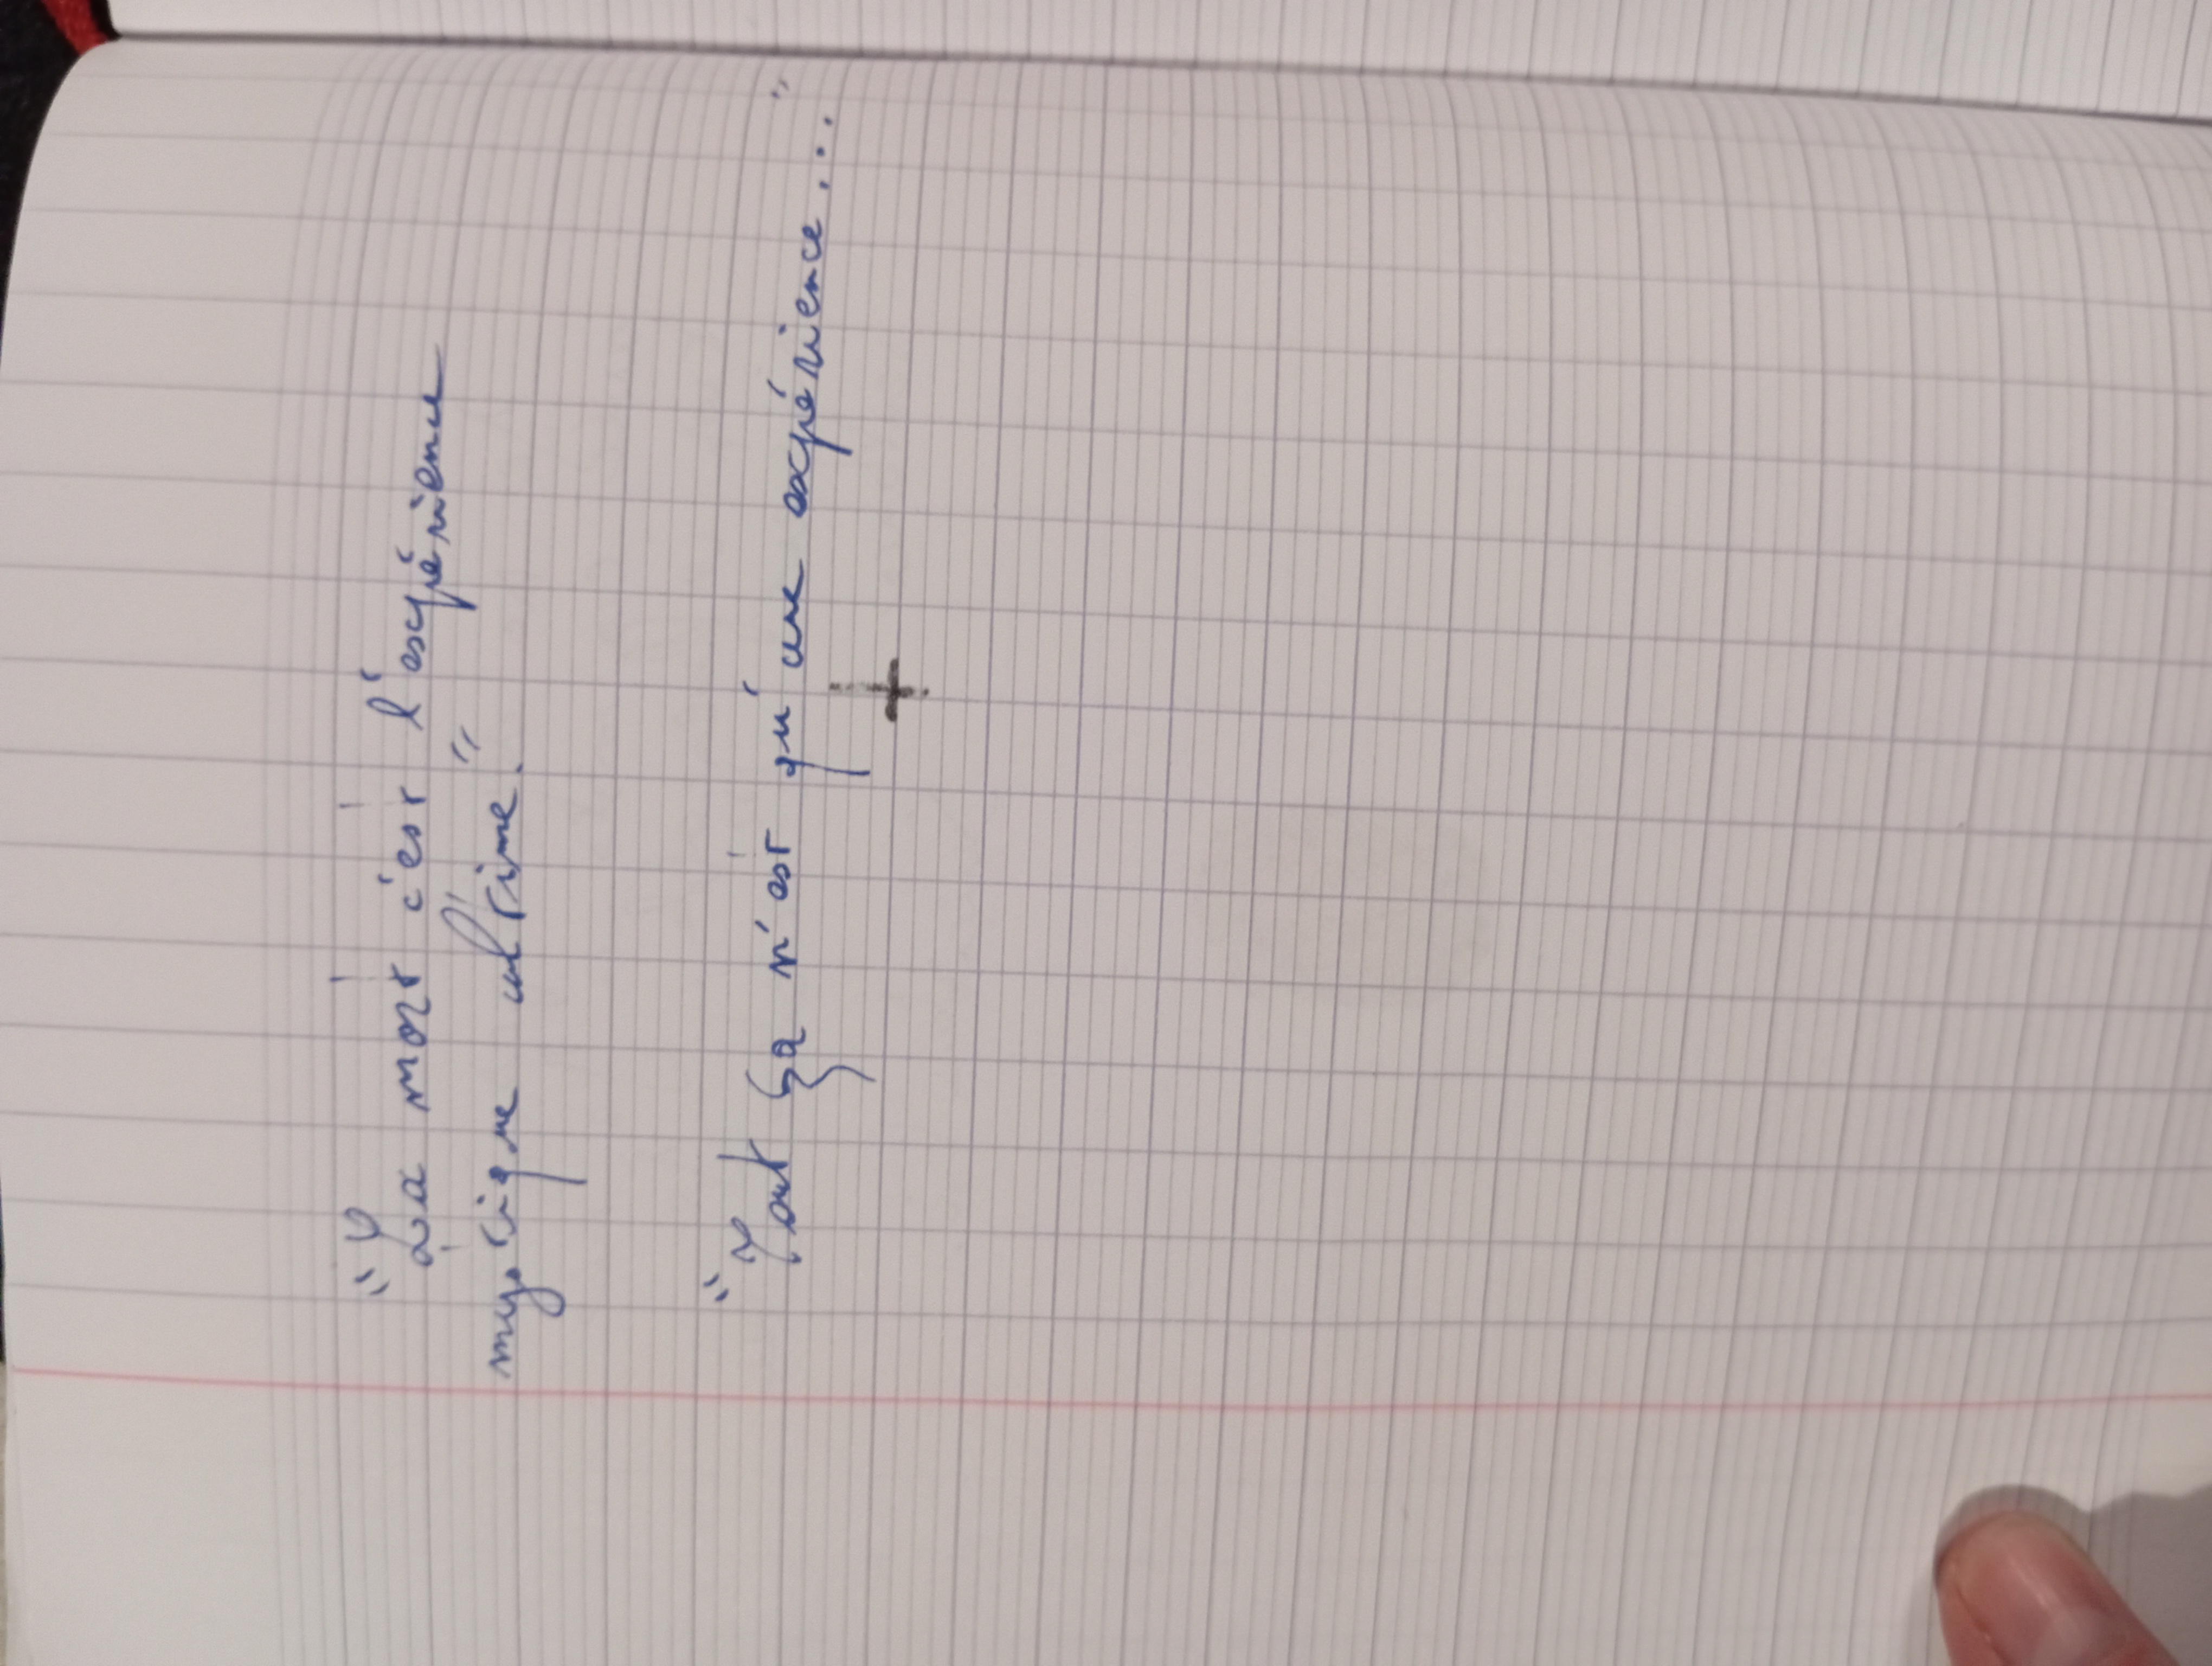 "La mort c'est l'expérience
mystique ultime."
"Tout ça n'est qu'une expérience..."